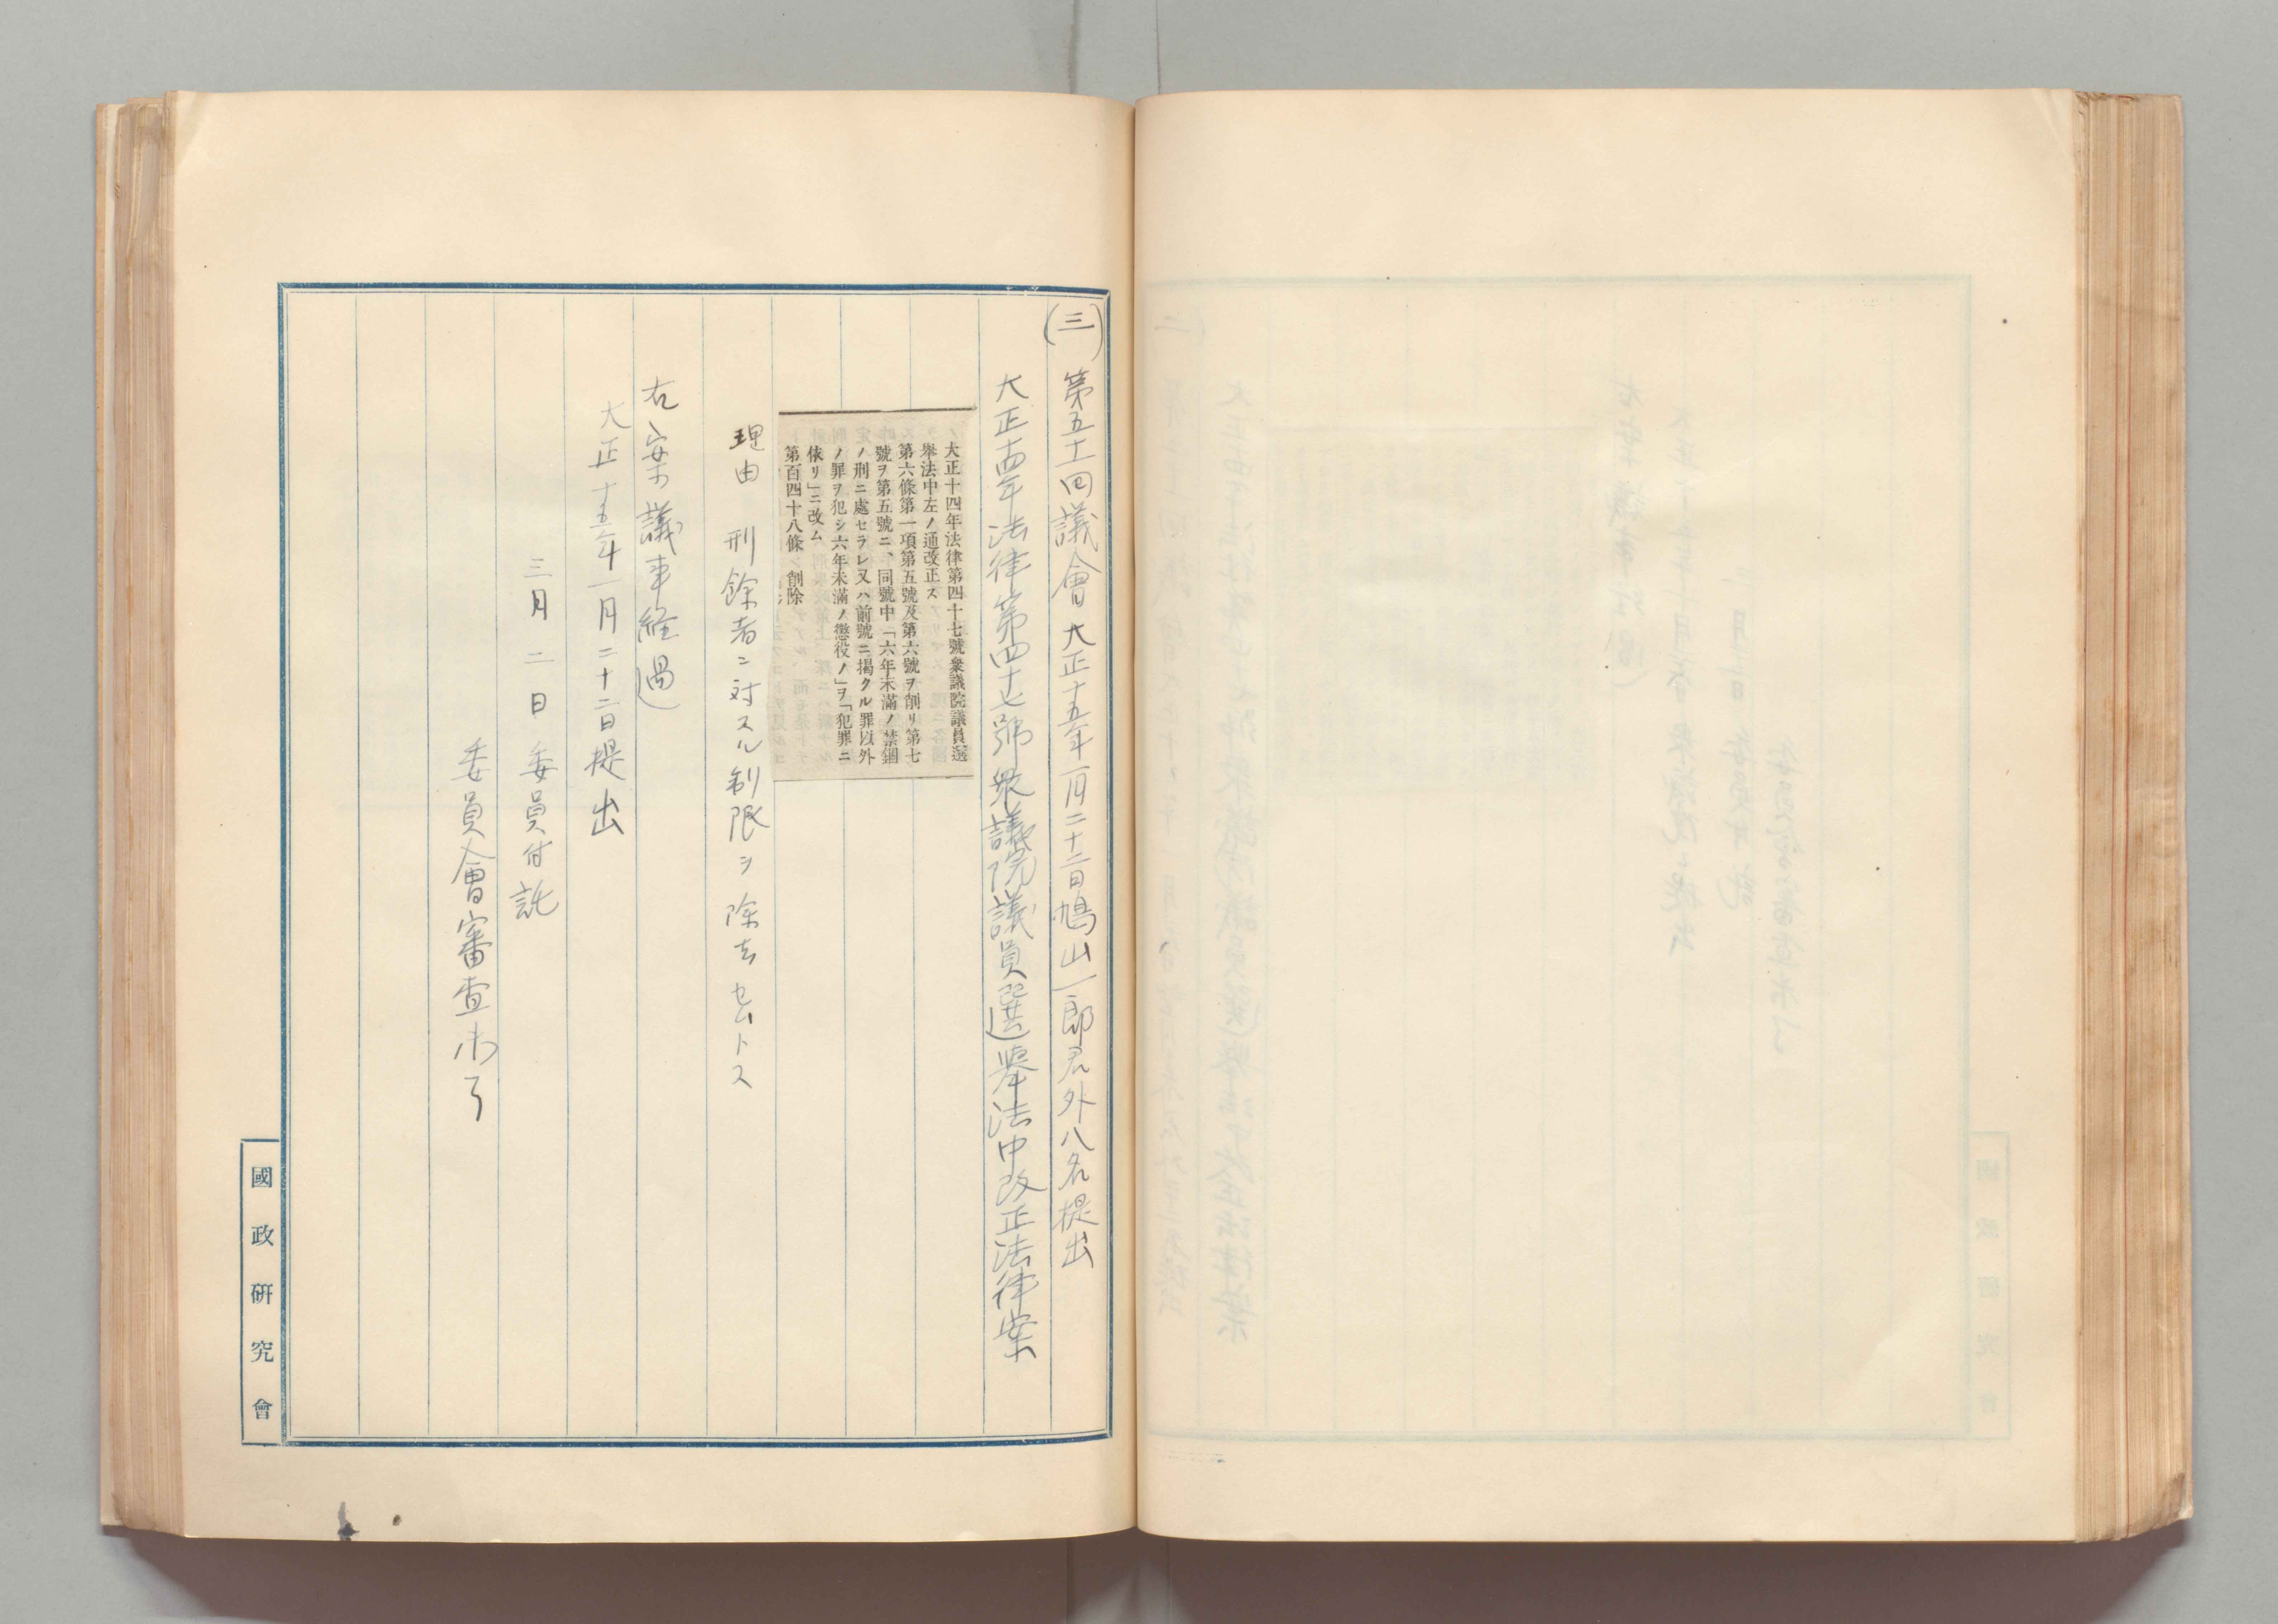 (三)第五十一回議會 大正十五年一月二十二日鳩山一郎君外八名提出
大正十四年法律第四十七號衆議院議員選擧法中改正法律案
大正十四年法律第四十七號衆議院議員選
擧法中左ノ通改正ス
第六條第一項第五號及第六號ヲ削リ第七
號ヲ第五號ニ、同號中「六年未滿ノ禁錮
ノ刑ニ處セラレ又ハ前號ニ揭クル罪以外
ノ罪ヲ犯シ六年未滿ノ懲役ノ」ヲ「犯罪ニ
依リ」ニ改ム
第百四十八條 削除
理由 刑餘者ニ対スル制限ヲ除去セムトス
右案議事経過
大正十五年一月二十二日提出
三月二日委員付託
委員會審査未了
國政研究會